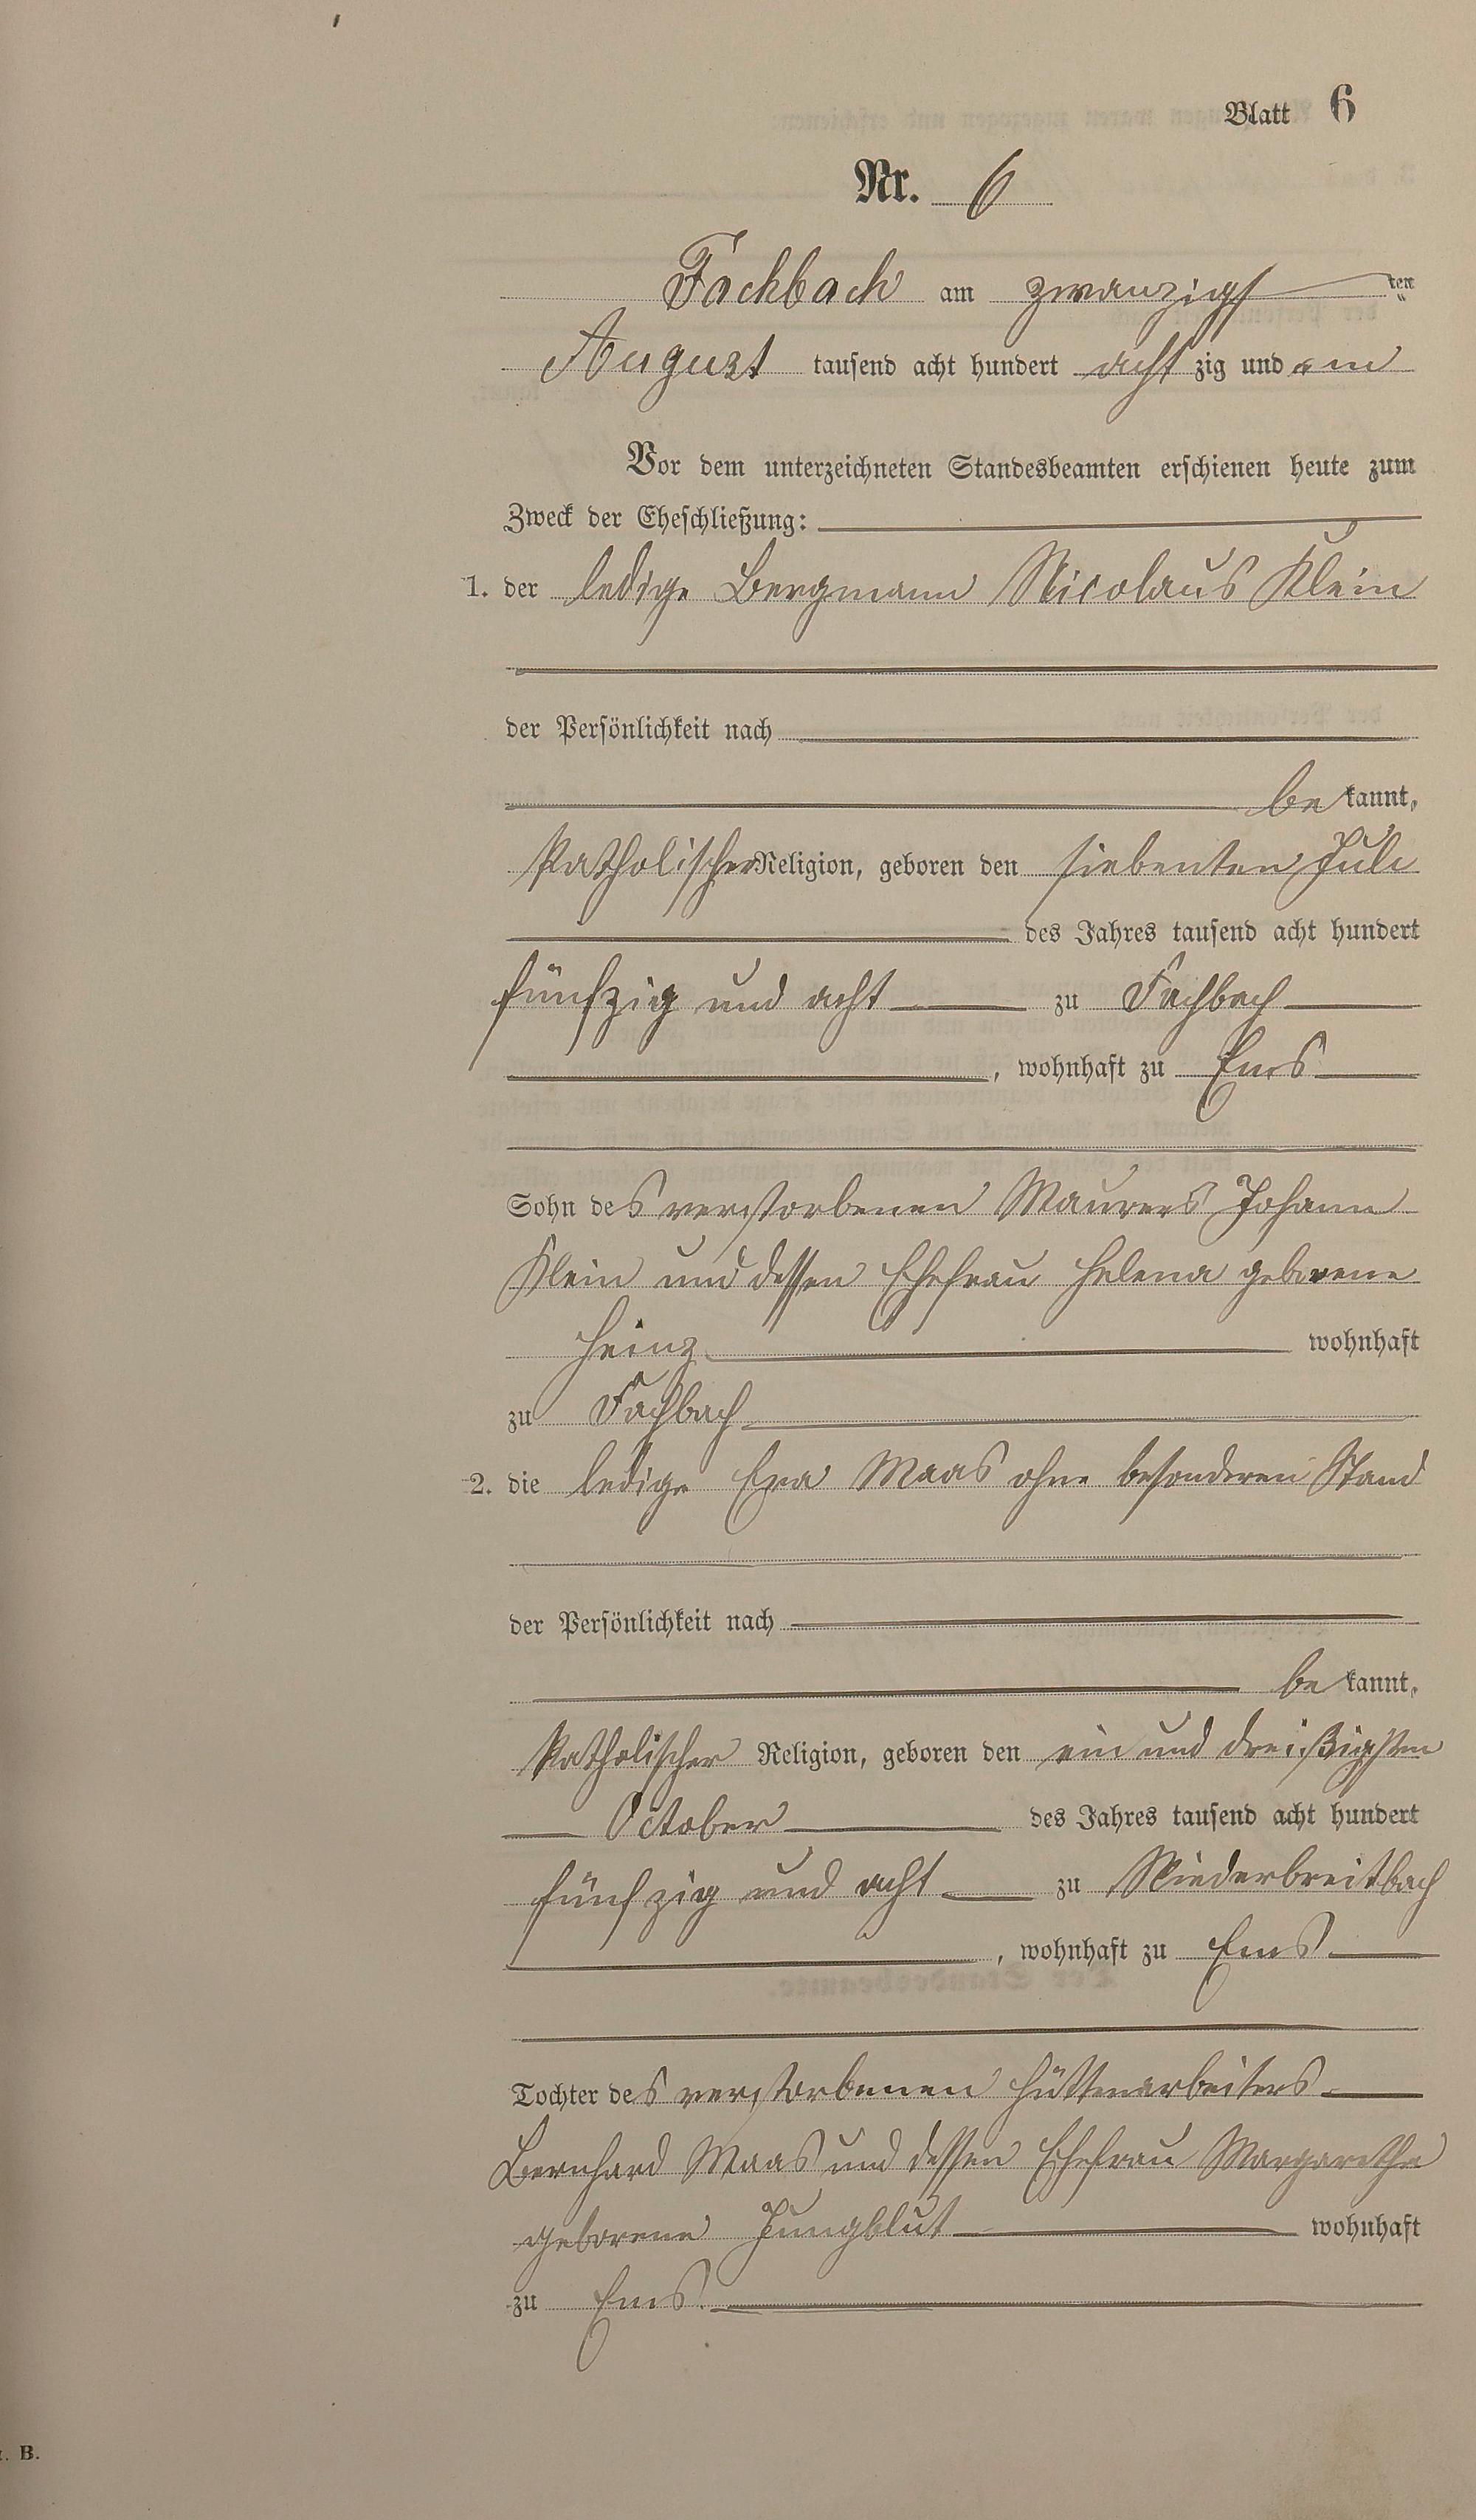 Blatt 6
Nr. 6
Fachbach am zwanzigsten
August tausend acht hundert achtzig und ein
Vor dem unterzeichneten Standesbeamten erschienen heute zum
Zweck der Eheschließung:
1. der ledige Bergmann Nicolaus Klein
der Persönlichkeit nach
be kannt,
katholischer Religion, geboren den siebenten Juli
des Jahres tausend acht hundert
fünfzig und acht zu Fachbach
, wohnhaft zu Ems
Sohn des verstorbenen Maurers Johann
Klein und dessen Ehefrau Helena geborene
Heinz wohnhaft
zu Fachbach
2. die ledige Eva Maas ohne besonderen Stand
der Persönlichkeit nach
be kannt,
katholischer Religion, geboren den ein und dreißigsten
October des Jahres tausend acht hundert
fünfzig und acht zu Niederbreitbach
, wohnhaft zu Ems
Tochter des verstorbenen Hüttenarbeiters
Bernhard Maas und dessen Ehefrau Margarethe
geborene Jungblut wohnhaft
zu Ems.
B.